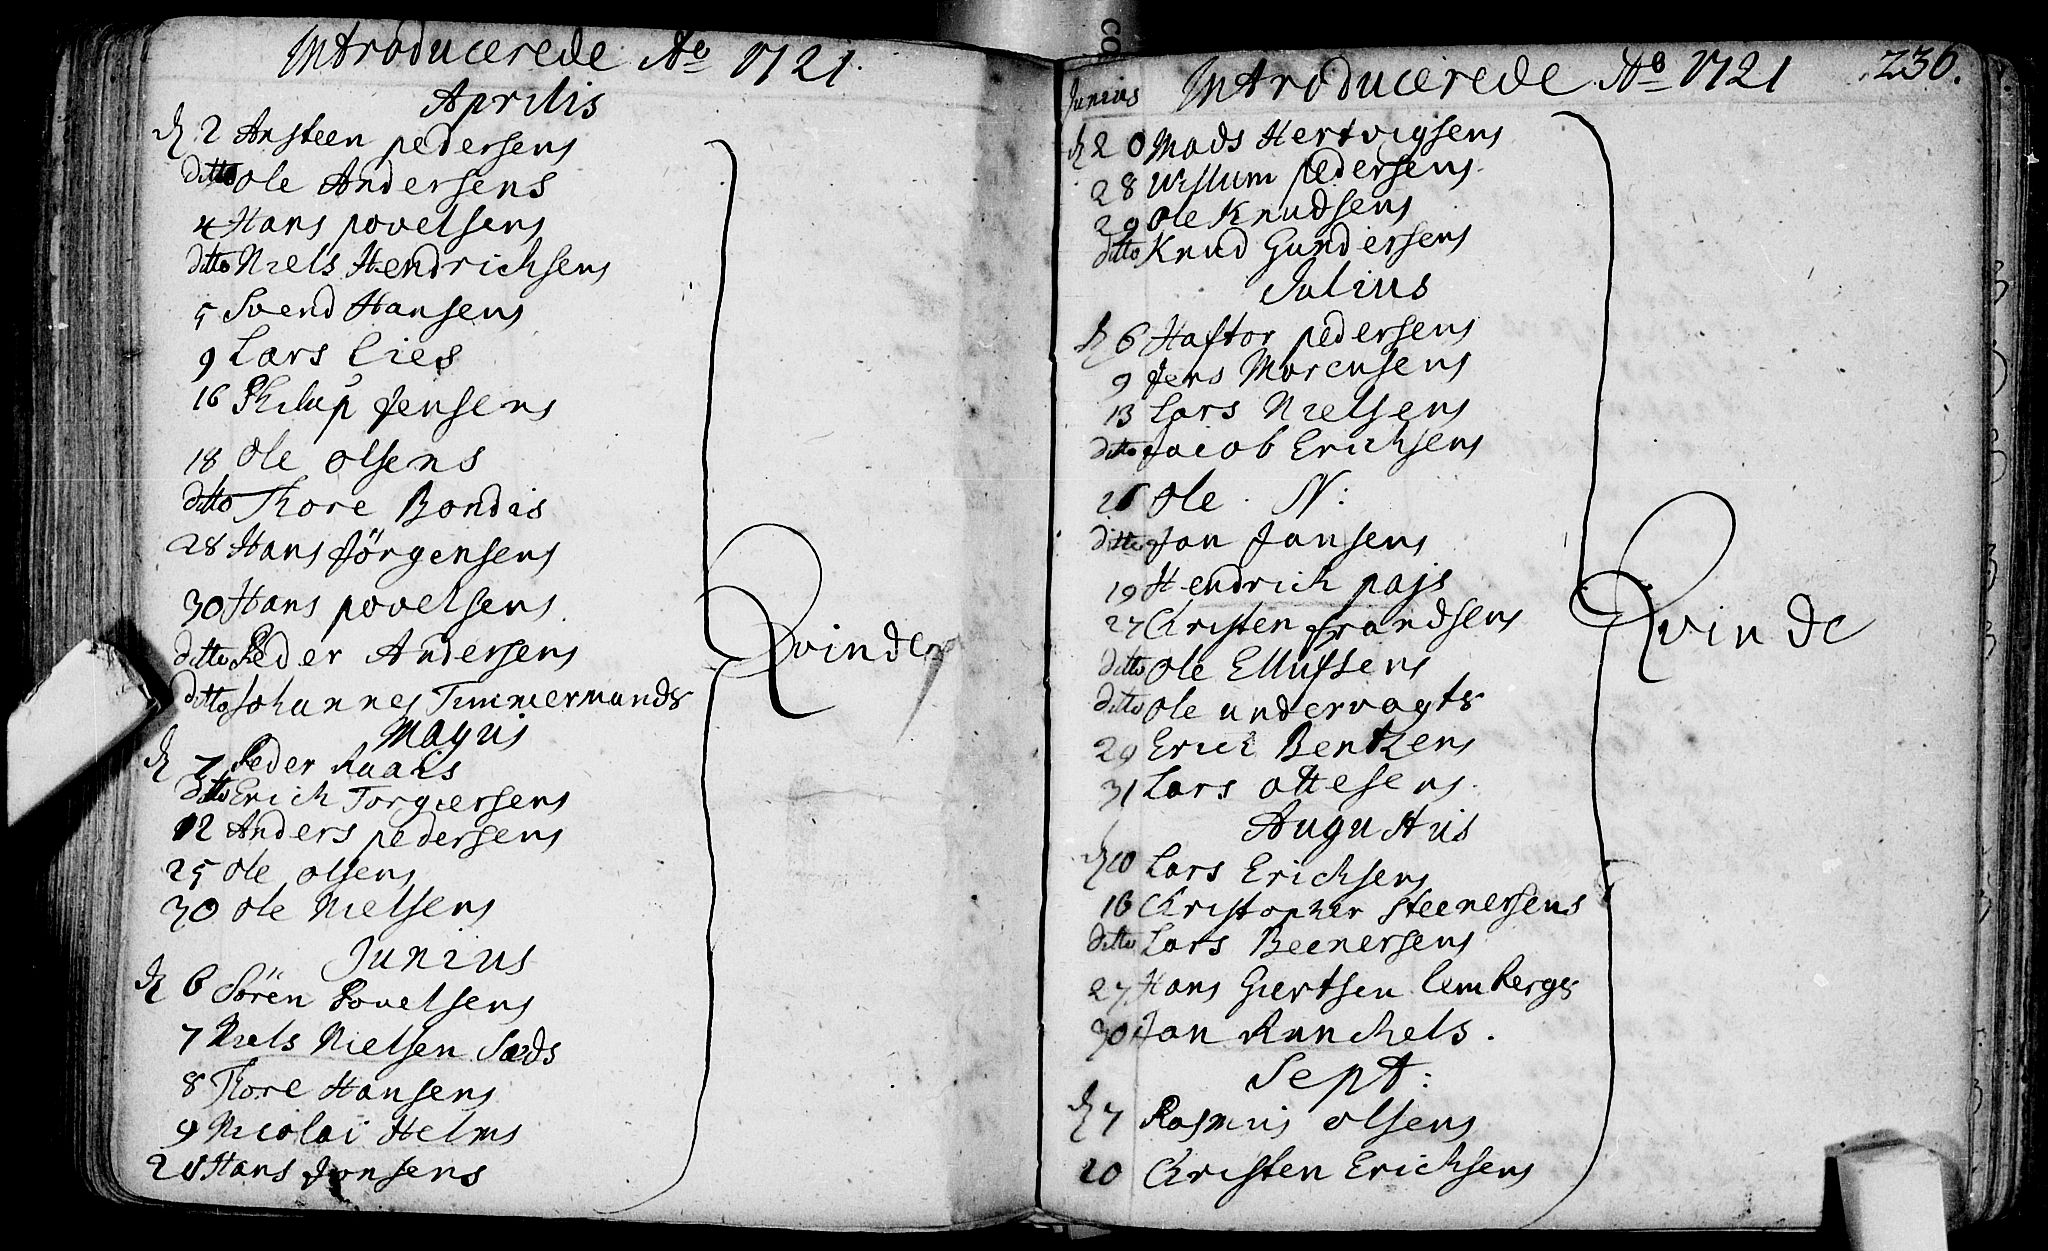 Introducerede Ao 1721.
Aprilis
d 2 Ansteen pedersens
ditto Ole Andersens
4 Hans povelsens
ditto Niels Hendrichsens
5 Svend Hansens
9 Lars Cies
16 Philup Jensens
18 Ole Olsens
ditto Thore Bondis
28 Hans Jörgensens
30 Hans povelsens
ditto Peder Andersens
ditto Johannes Timmermands
Qvinder
Mayus
d 7 Peder Ruars
ditto Erich Torgiersens
12 Anders pedersens
25 Ole Olsens
30 Ole Nielsens
Junius
d 6 Sören Povelsens
7 Niels Nielsen Sæds
8 Thore Hansens
9 Nicolai Helms
28 Hans Jonsens
236.
Introducerede Ao 1721
Junius
d 20 Mads Hertvigsens
28 Willum pedersens
29 Ole Knudsens
ditto Knud Gundersens
Julius
d 6 Haftor pedersens
9 Jens Marcusens
13 Lars Nielsens
ditto Jacob Erichsens
26 Ole N:
ditto Jan Jansens
19 Hendrich pajs
27 Christen frandsens
ditto Ole Ellufsens
ditto Ole undervagts
29 Erick Bentzens
31 Lars Ottesens
Qvinde
Augustus
d 10 Lars Erichsens
16 Christopher Steenersens
ditto Lars Beenersens
27 Hans Giertsen Cembergs
30 Jan Runchels.
Sept:
d 7 Rasmus Olsens
20 Christen Erichsens